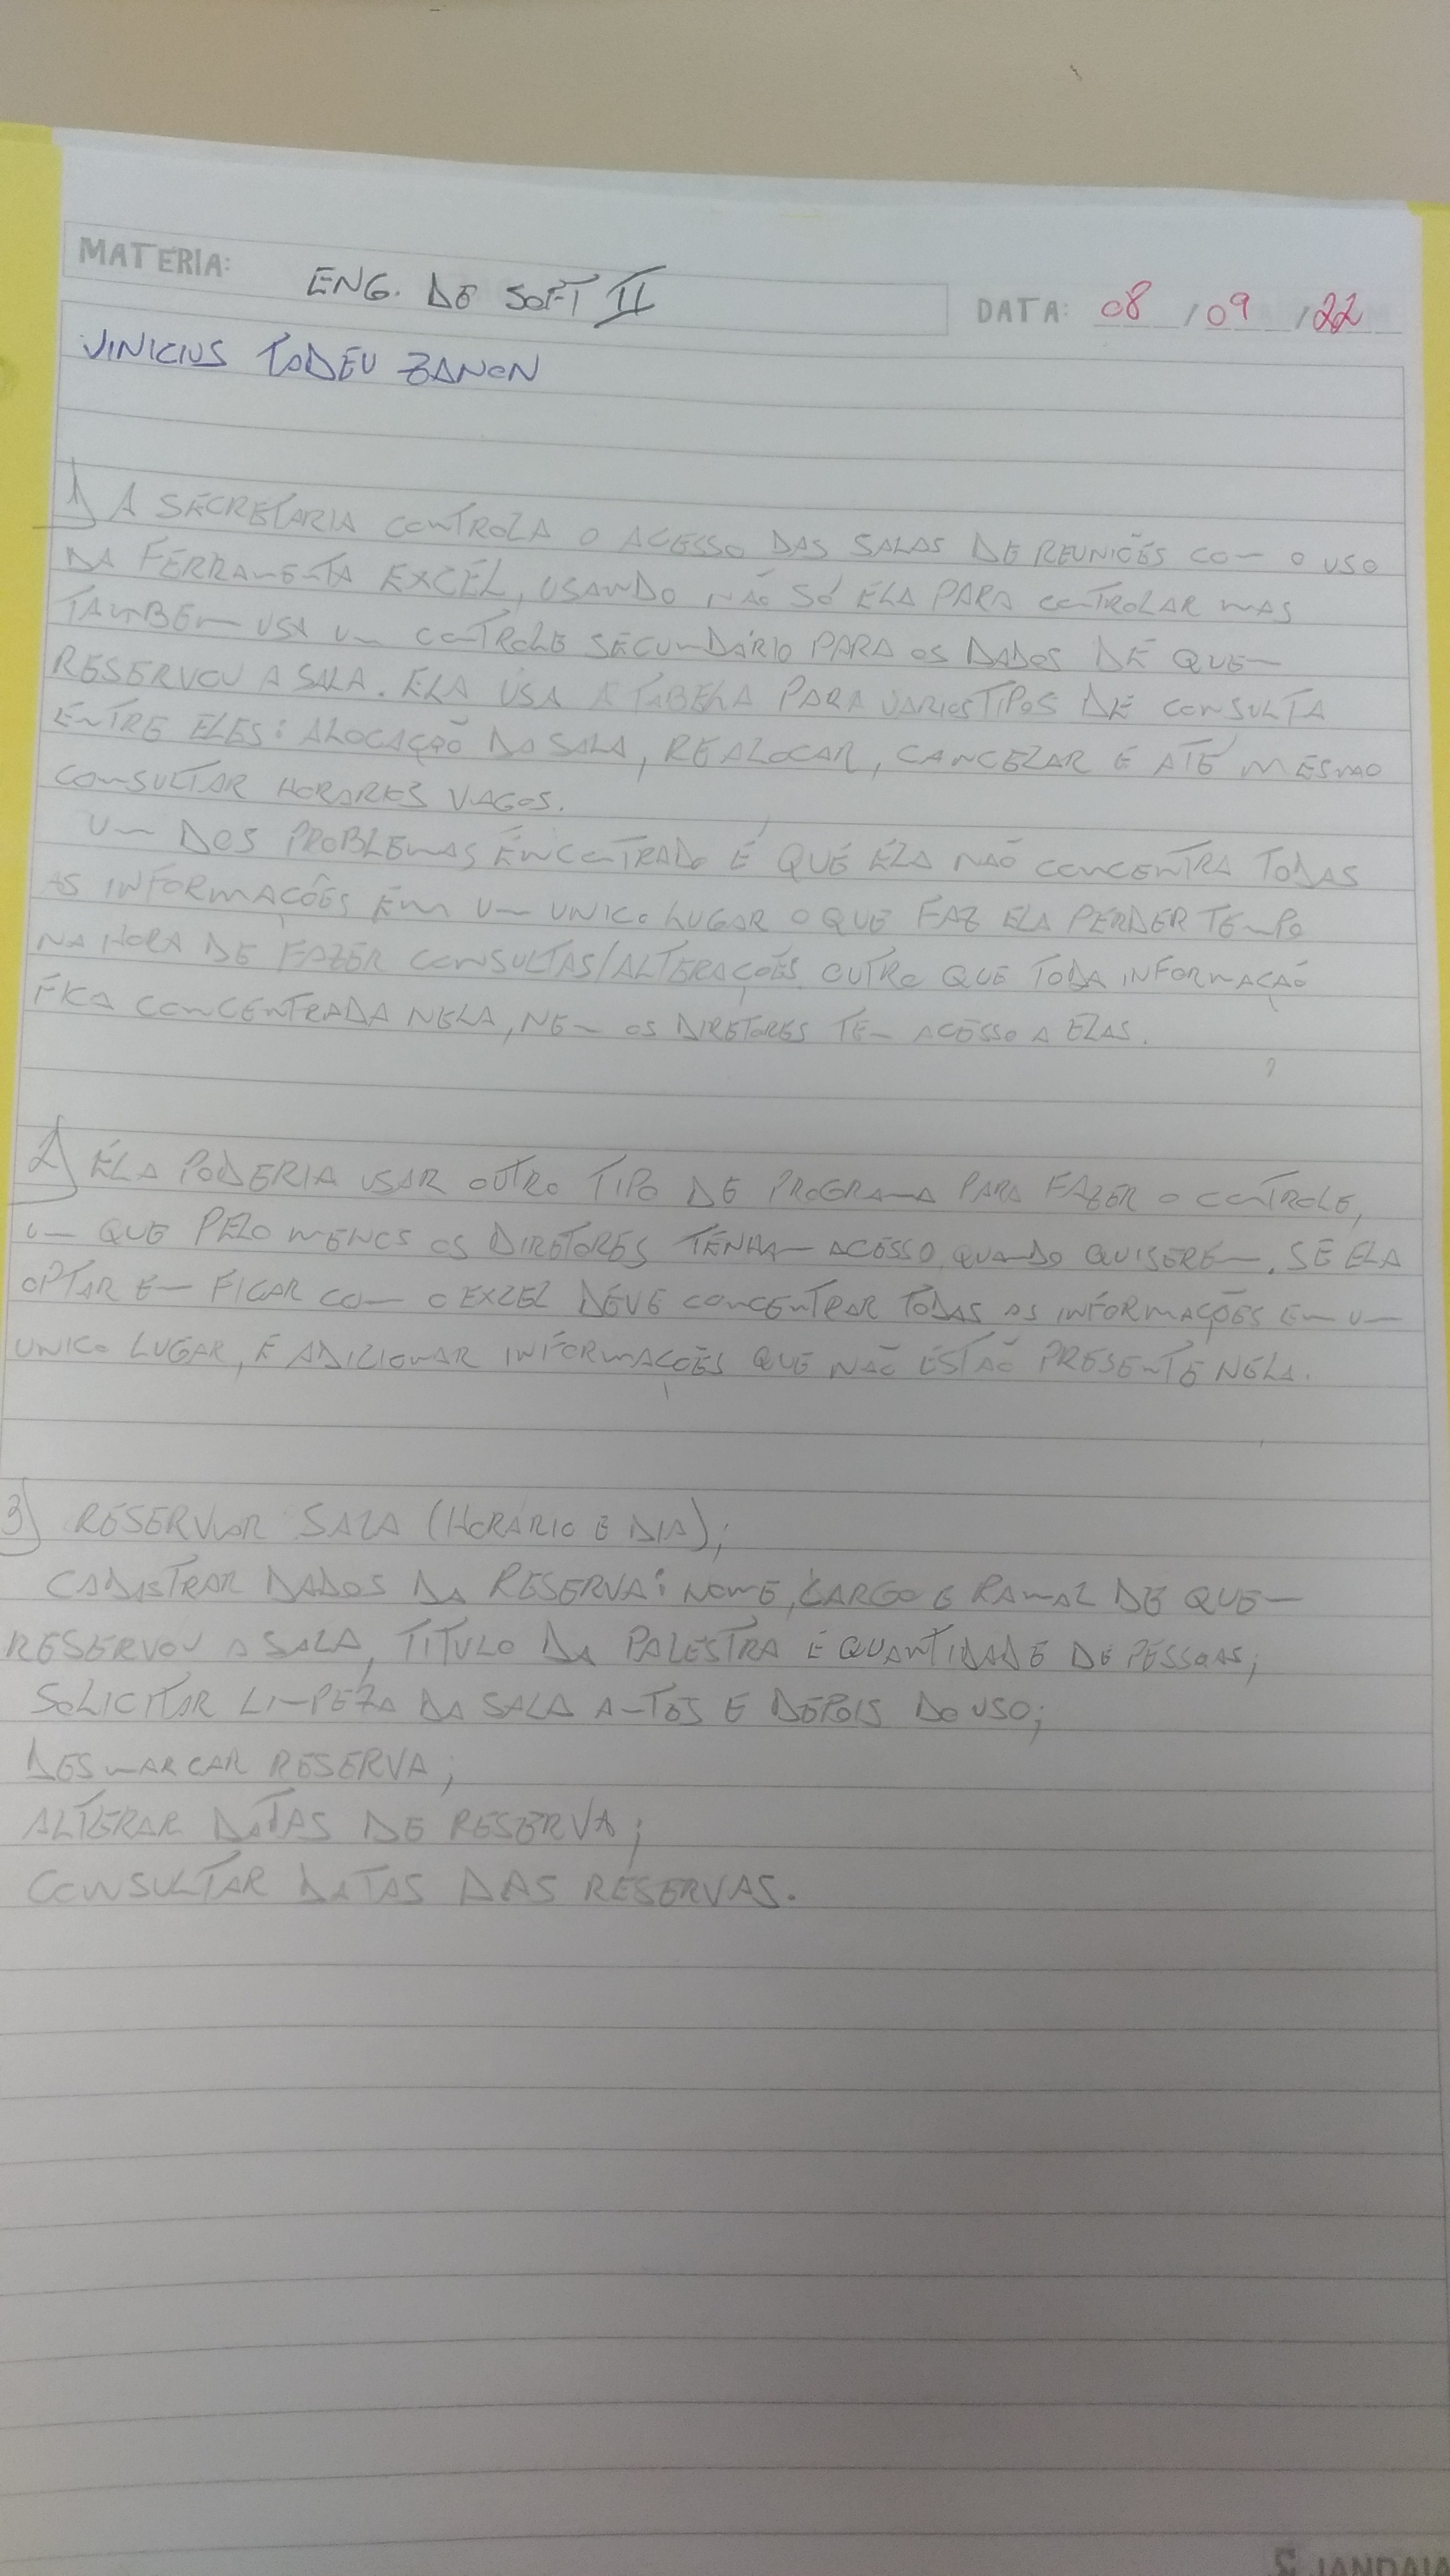 MATERIA: ENG. DE SOFT II
DATA: 08/09/22
VINICIUS TADEU ZANON
1) A SECRETARIA CONTROLA O ACESSO DAS SALAS DE REUNIÕES COM O USO
DA FERRAMENTA EXCEL, USANDO NÃO SÓ ELA PARA CONTROLAR MAS
TAMBEM USA UM CONTROLE SECUNDÁRIO PARA OS DADOS DE QUEM
RESERVOU A SALA. ELA USA A TABELA PARA VARIOS TIPOS DE CONSULTA
ENTRE ELES: ALOCAÇÃO DA SALA, REALOCAR, CANCELAR E ATÉ MESMO
CONSULTAR HORARES VAGOS.
UM DOS PROBLEMAS ENCONTRADO É QUE ELA NÃO CONCENTRA TODAS
AS INFORMAÇÕES EM UM UNICO LUGAR O QUE FAZ ELA PERDER TEMPO
NA HORA DE FAZER CONSULTAS/ALTERAÇÕES. OUTRO QUE TODA INFORMAÇÃO
FICA CONCENTRADA NELA, NEM OS DIRETORES TEM ACESSO A ELAS.
2) ELA PODERIA USAR OUTRO TIPO DE PROGRAMA PARA FAZER O CONTROLE,
UM QUE PELO MENOS OS DIRETORES TENHAM ACESSO QUANDO QUISEREM. SE ELA
OPTAR EM FICAR COM O EXCEL DEVE CONCENTRAR TODAS AS INFORMAÇÕES EM UM
UNICO LUGAR, E ADICIONAR INFORMAÇÕES QUE NÃO ESTÃO PRESENTE NELA.
3) RESERVAR SALA (HORÁRIO E DIA);
CADASTRAR DADOS DA RESERVA: NOME, CARGO E RAMAL DE QUEM
RESERVOU A SALA, TITULO DA PALESTRA E QUANTIDADE DE PESSOAS;
SOLICITAR LIMPEZA DA SALA ANTES E DEPOIS DO USO;
DESMARCAR RESERVA;
ALTERAR DATAS DE RESERVA;
CONSULTAR DATAS DAS RESERVAS.